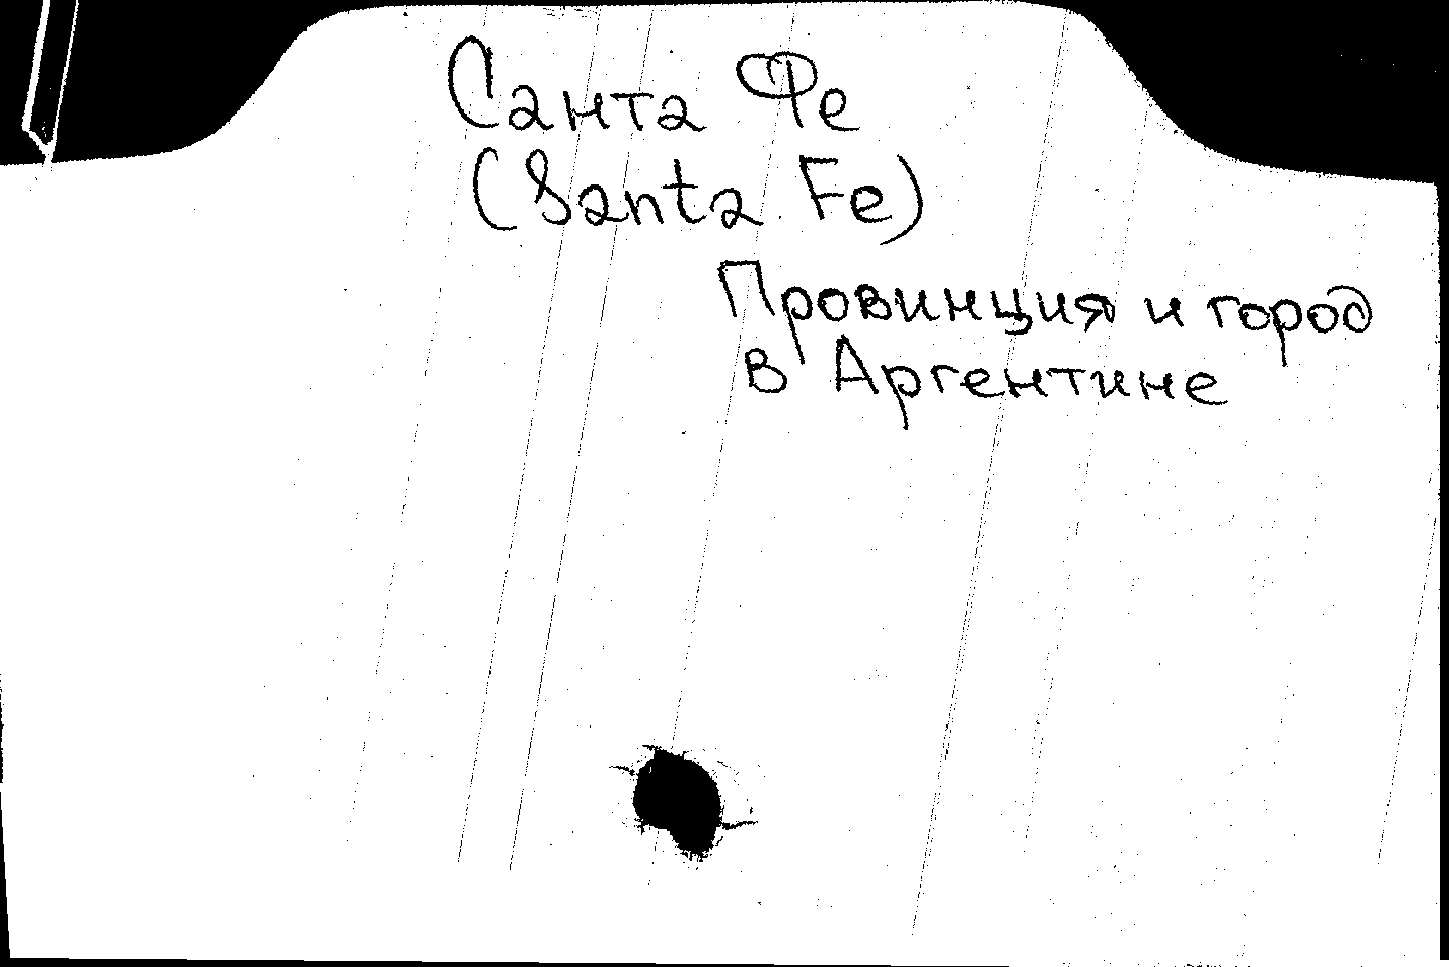 Санта Фе
(Santa Fe)
Провинция и город
в Аргентине